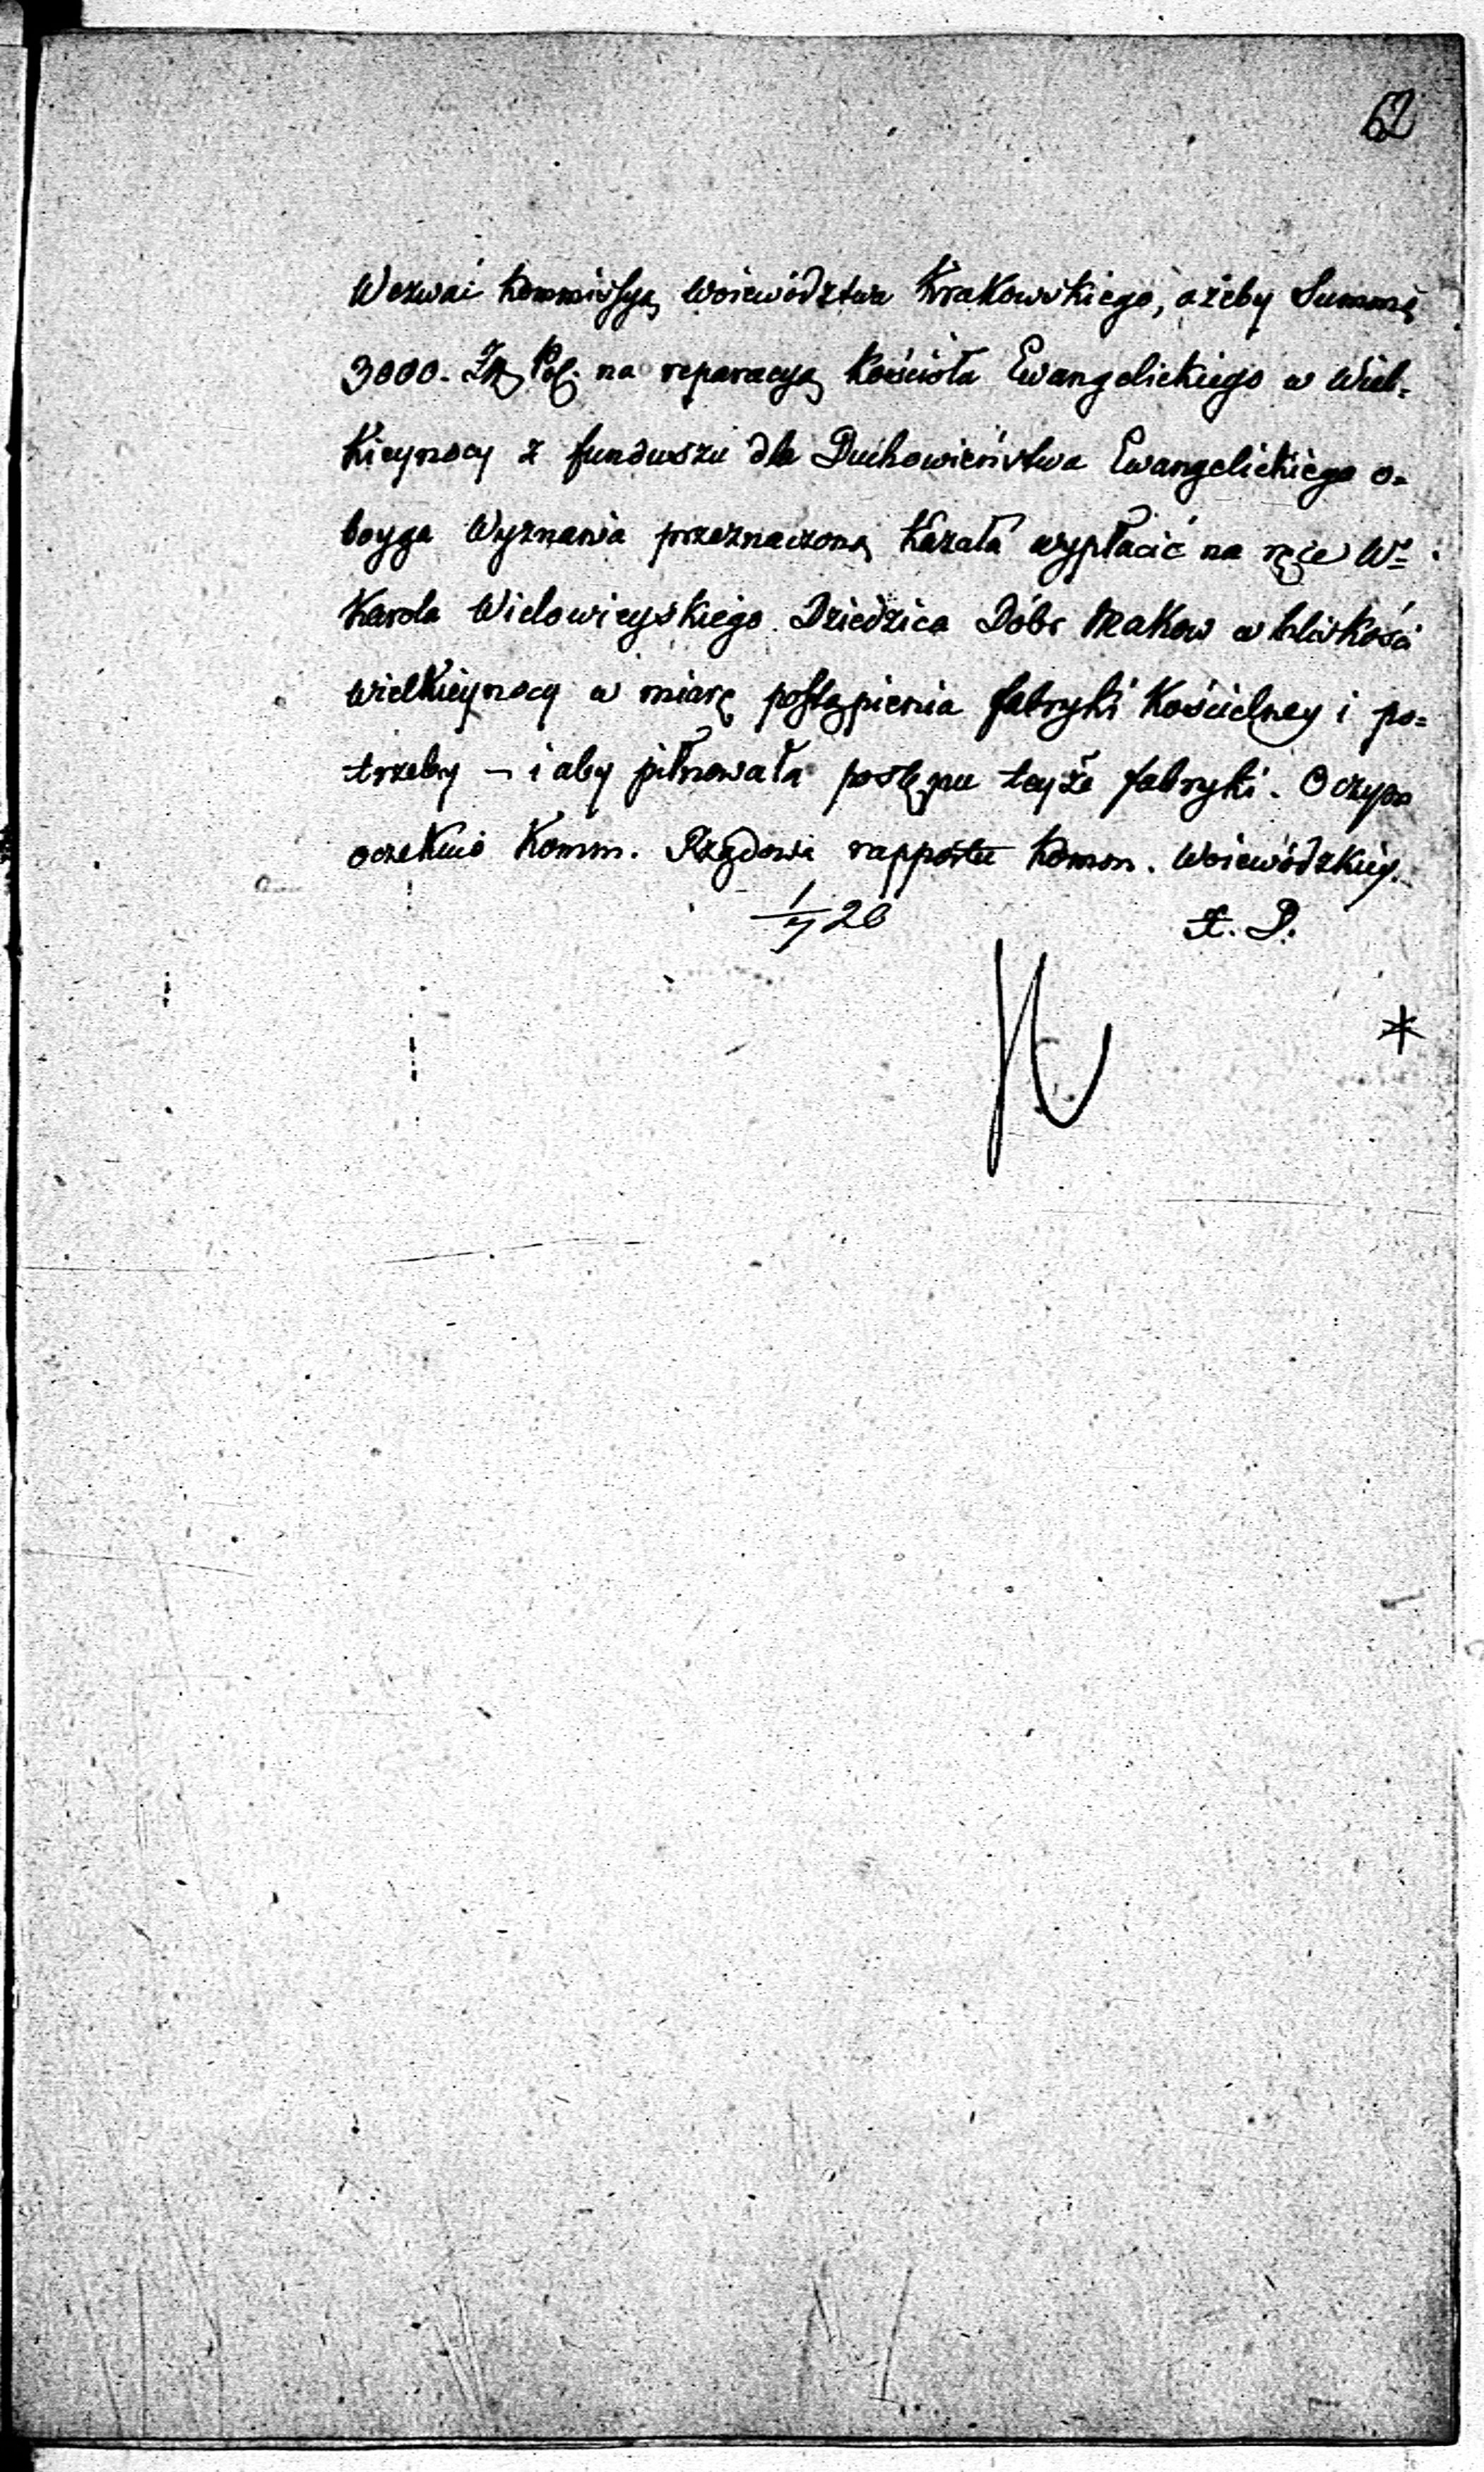 62
Wezwać Kommissyą Woiewództwa Krakowskiego, ażeby Summę
3000. Zł. Pol. na reparacyą Kościoła Ewangelickiego w Wiel-
kieynocy z funduszu dla Duchowieństwa Ewangelickiego o-
boyga Wyznania przeznaczoną kazała wypłacić na ręce Wº
Karola Wielowieyskiego Dziedzica Dóbr w blizkości
Wielkieynocy w miarę postąpienia fabryki Kościelney i po=
trzeby – i aby pilnowała postępu teyże fabryki. O czym
oczekuie Komm. Rządowa rapportu Komm. Woiewódzkiey.
1/7 20